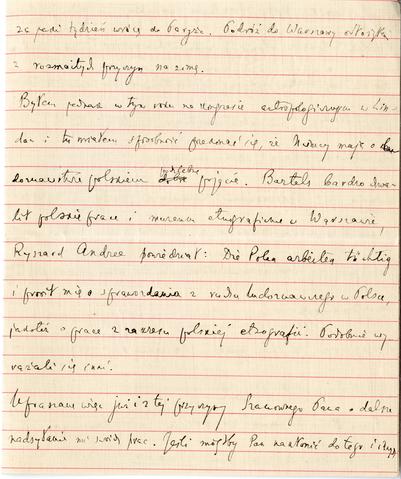 za jeden tydzień wrócę do Paryża. Podróż do Warszawy odłożyłem
z rozmaitych przyczyn na zimę.
Byłem jednak w tym roku na kongresie antropologicznym w Lin-
dau i tu miałem sposobność przekonać się, że Niemcy mają o lu-
doznawstwie polskiem pojęcie. Bartels bardzo chwa-
lił polskie prace i muzeum etnograficzne w Warszawie,
Ryszard Andree powiedział: Die Polen arbeiten tüchtig
i prosił mię o sprawozdania z ruchu ludoznawczego w Polsce,
jakoteż o prace z zakresu polskiej etnografii. Podobnie wy-
rażali się inni.
Upraszam więc już i z tej przyczyny Szanownego Pana o dalsze
nadsyłanie mi swoich prac. Jeśli mógłby Pan nakłonić do tego i